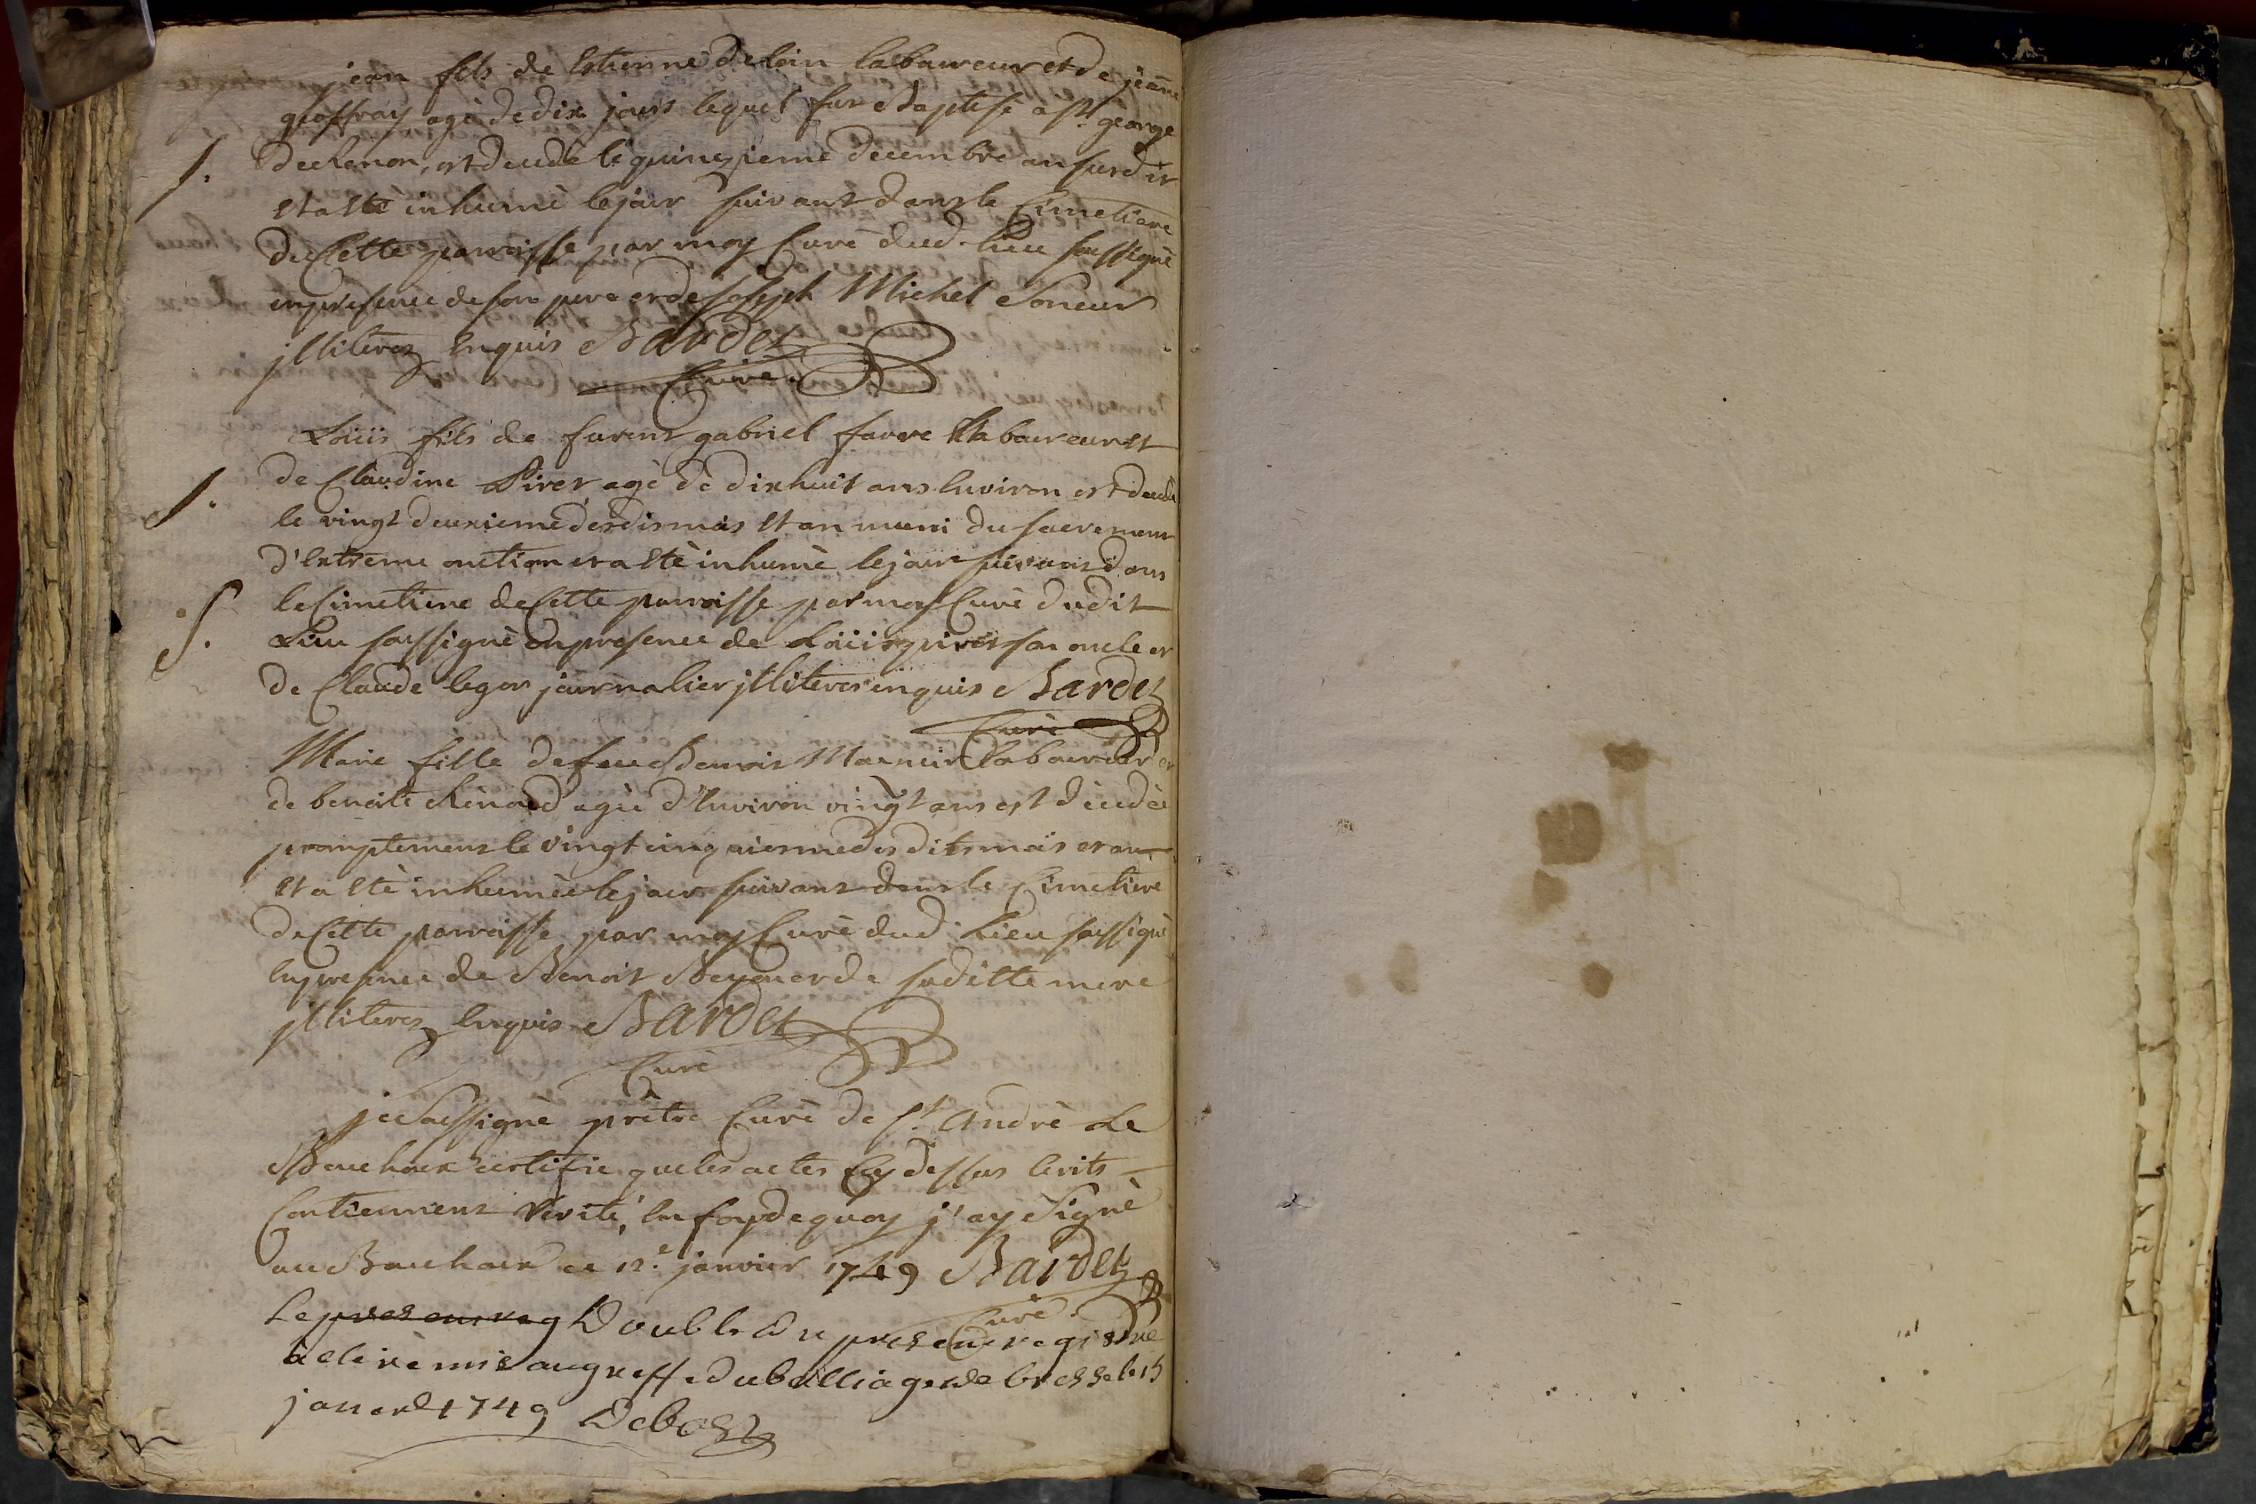 jean fils de Estienne Deloin laboureur et de jeane
geoffray agé de dix jours lequel fut Baptisé à St george
S. de Renon, est decedé le quinzieme decembre an susdit
et a été inhumé le jour suivant dans le Cimetiere
de Cette parroisse par moy Curé dud. lieu soussigné
en presence de son pere et de Joseph Michel Soneur
jlliterez enquis Bardet
Curé
Loüis fils de furent gabriel favre laboureur et
S. de Claudine Piret agé de dixhuit ans Environ est decedé
le vingt deuxieme desdis mois et an muni du sacrement
d'Extreme onction et a été inhumé le jour suivant dans
S. le Cimetiere de Cette parroisse par moy Curé dudit
Lieu soussigné en presence de Loüis piret son oncle et
de Claude legor journalier jlliterés enquis Bardet
Curé
Marie fille de feu Benoit laboureur et
de benoite Renaud agée d'Environ vingt ans est décedée
promptement le vingt cinquiesme desdits mois et an
et a été inhumée le jour suivant dans le Cimetiere
de Cette parroisse par moy Curé dud. Lieu soussigné
En presence de Benoit et de saditte mere
jlliterez Enquis Bardet
Curé
je soussigné prêtre Curé de St. André Le
Bouchoux certifie que les actes Cy dessus Ecrits
Contiennent Verité, En foy de quoy j'ay Signé
au Bouchoux ce 12e. janvier 1749 Bardet
Curé
Le Double du present registre
à eté remis au greffe du bailliage de bresse le 15
janvier 1749 Debost